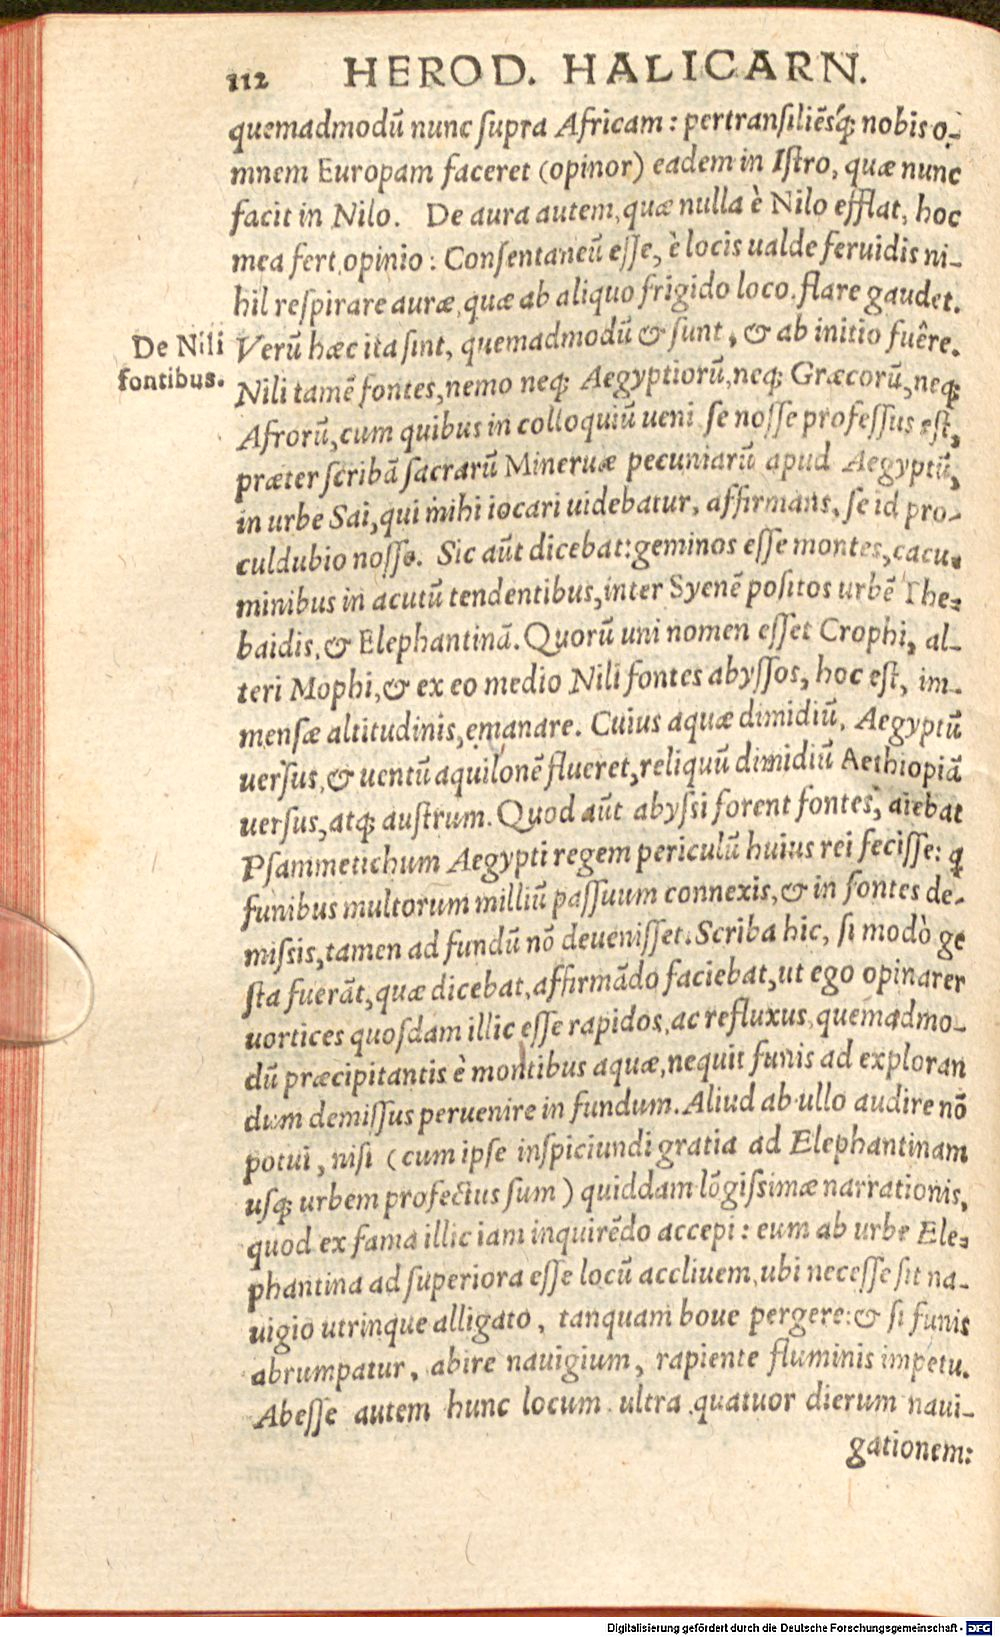 112 HEROD. HALICARN.
quemadmodũ nunc ſupra Africam: pertranſiliẽsq́; nobis o-
mnem Europam faceret (opinor) eadem in Iſtro, quæ nunc
facit in Nilo. De aura autem, quæ nulla è Nilo efflat, hoc
mea fert opinio: Conſentaneũ eſſe, è locis ualde feruidis ni-
hil reſpirare auræ, quæ ab aliquo frigido loco flare gaudet.
De Nili
fontibus.
Verũ hæc ita ſint, quemadmodũ & ſunt, & ab initio fuêre.
Nili tamẽ fontes, nemo neq; Aegyptiorũ, neq; Græcorũ, neq;
Afrorũ, cum quibus in colloquiũ ueni ſe noſſe profeſſus eſt,
præter ſcribã ſacrarũ Mineruæ pecuniarũ apud Aegyptũ,
in urbe Sai, qui mihi iocari uidebatur, affirmans, ſe id pro-
culdubio noſſe. Sic aũt dicebat: geminos eſſe montes, cacu-
minibus in acutũ tendentibus, inter Syenẽ poſitos urbẽ The-
baidis, & Elephantinã. Quorũ uni nomen eſſet Crophi, al-
teri Mophi, & ex eo medio Nili fontes abyſſos, hoc eſt, im-
menſæ altitudinis, emanare. Cuius aquæ dimidiũ, Aegyptũ
uerſus, & uentũ aquilonẽ flueret, reliquũ dimidiũ Aethiopiã
uerſus, atq; auſtrum. Quod aũt abyſsi forent fontes, aiebat
Pſammetichum Aegypti regem periculũ huius rei feciſſe: ꝗ
funibus multorum milliũ paſſuum connexis, & in fontes de-
miſsis, tamen ad fundũ nõ deueniſſet. Scriba hic, ſi modò ge
ſta fuerãt, quæ dicebat, affirmãdo faciebat, ut ego opinarer
uortices quoſdam illic eſſe rapidos, ac refluxus, quemadmo-
dũ præcipitantis è montibus aquæ, nequit funis ad exploran
dum demiſſus peruenire in fundum. Aliud ab ullo audire nõ
potui, niſi (cum ipſe inſpiciundi gratia ad Elephantinam
uſq; urbem profectus ſum) quiddam lõgiſsimæ narrationis,
quod ex fama illic iam inquirẽdo accepi: eum ab urbe Ele-
phantina ad ſuperiora eſſe locũ accliuem, ubi neceſſe ſit na-
uigio utrinque alligato, tanquam boue pergere: & ſi funis
abrumpatur, abire nauigium, rapiente fluminis impetu.
Abeſſe autem hunc locum ultra quatuor dierum naui-
gationem:
Digitalisierung gefördert durch die Deutsche Forschungsgemeinschaft - DFG